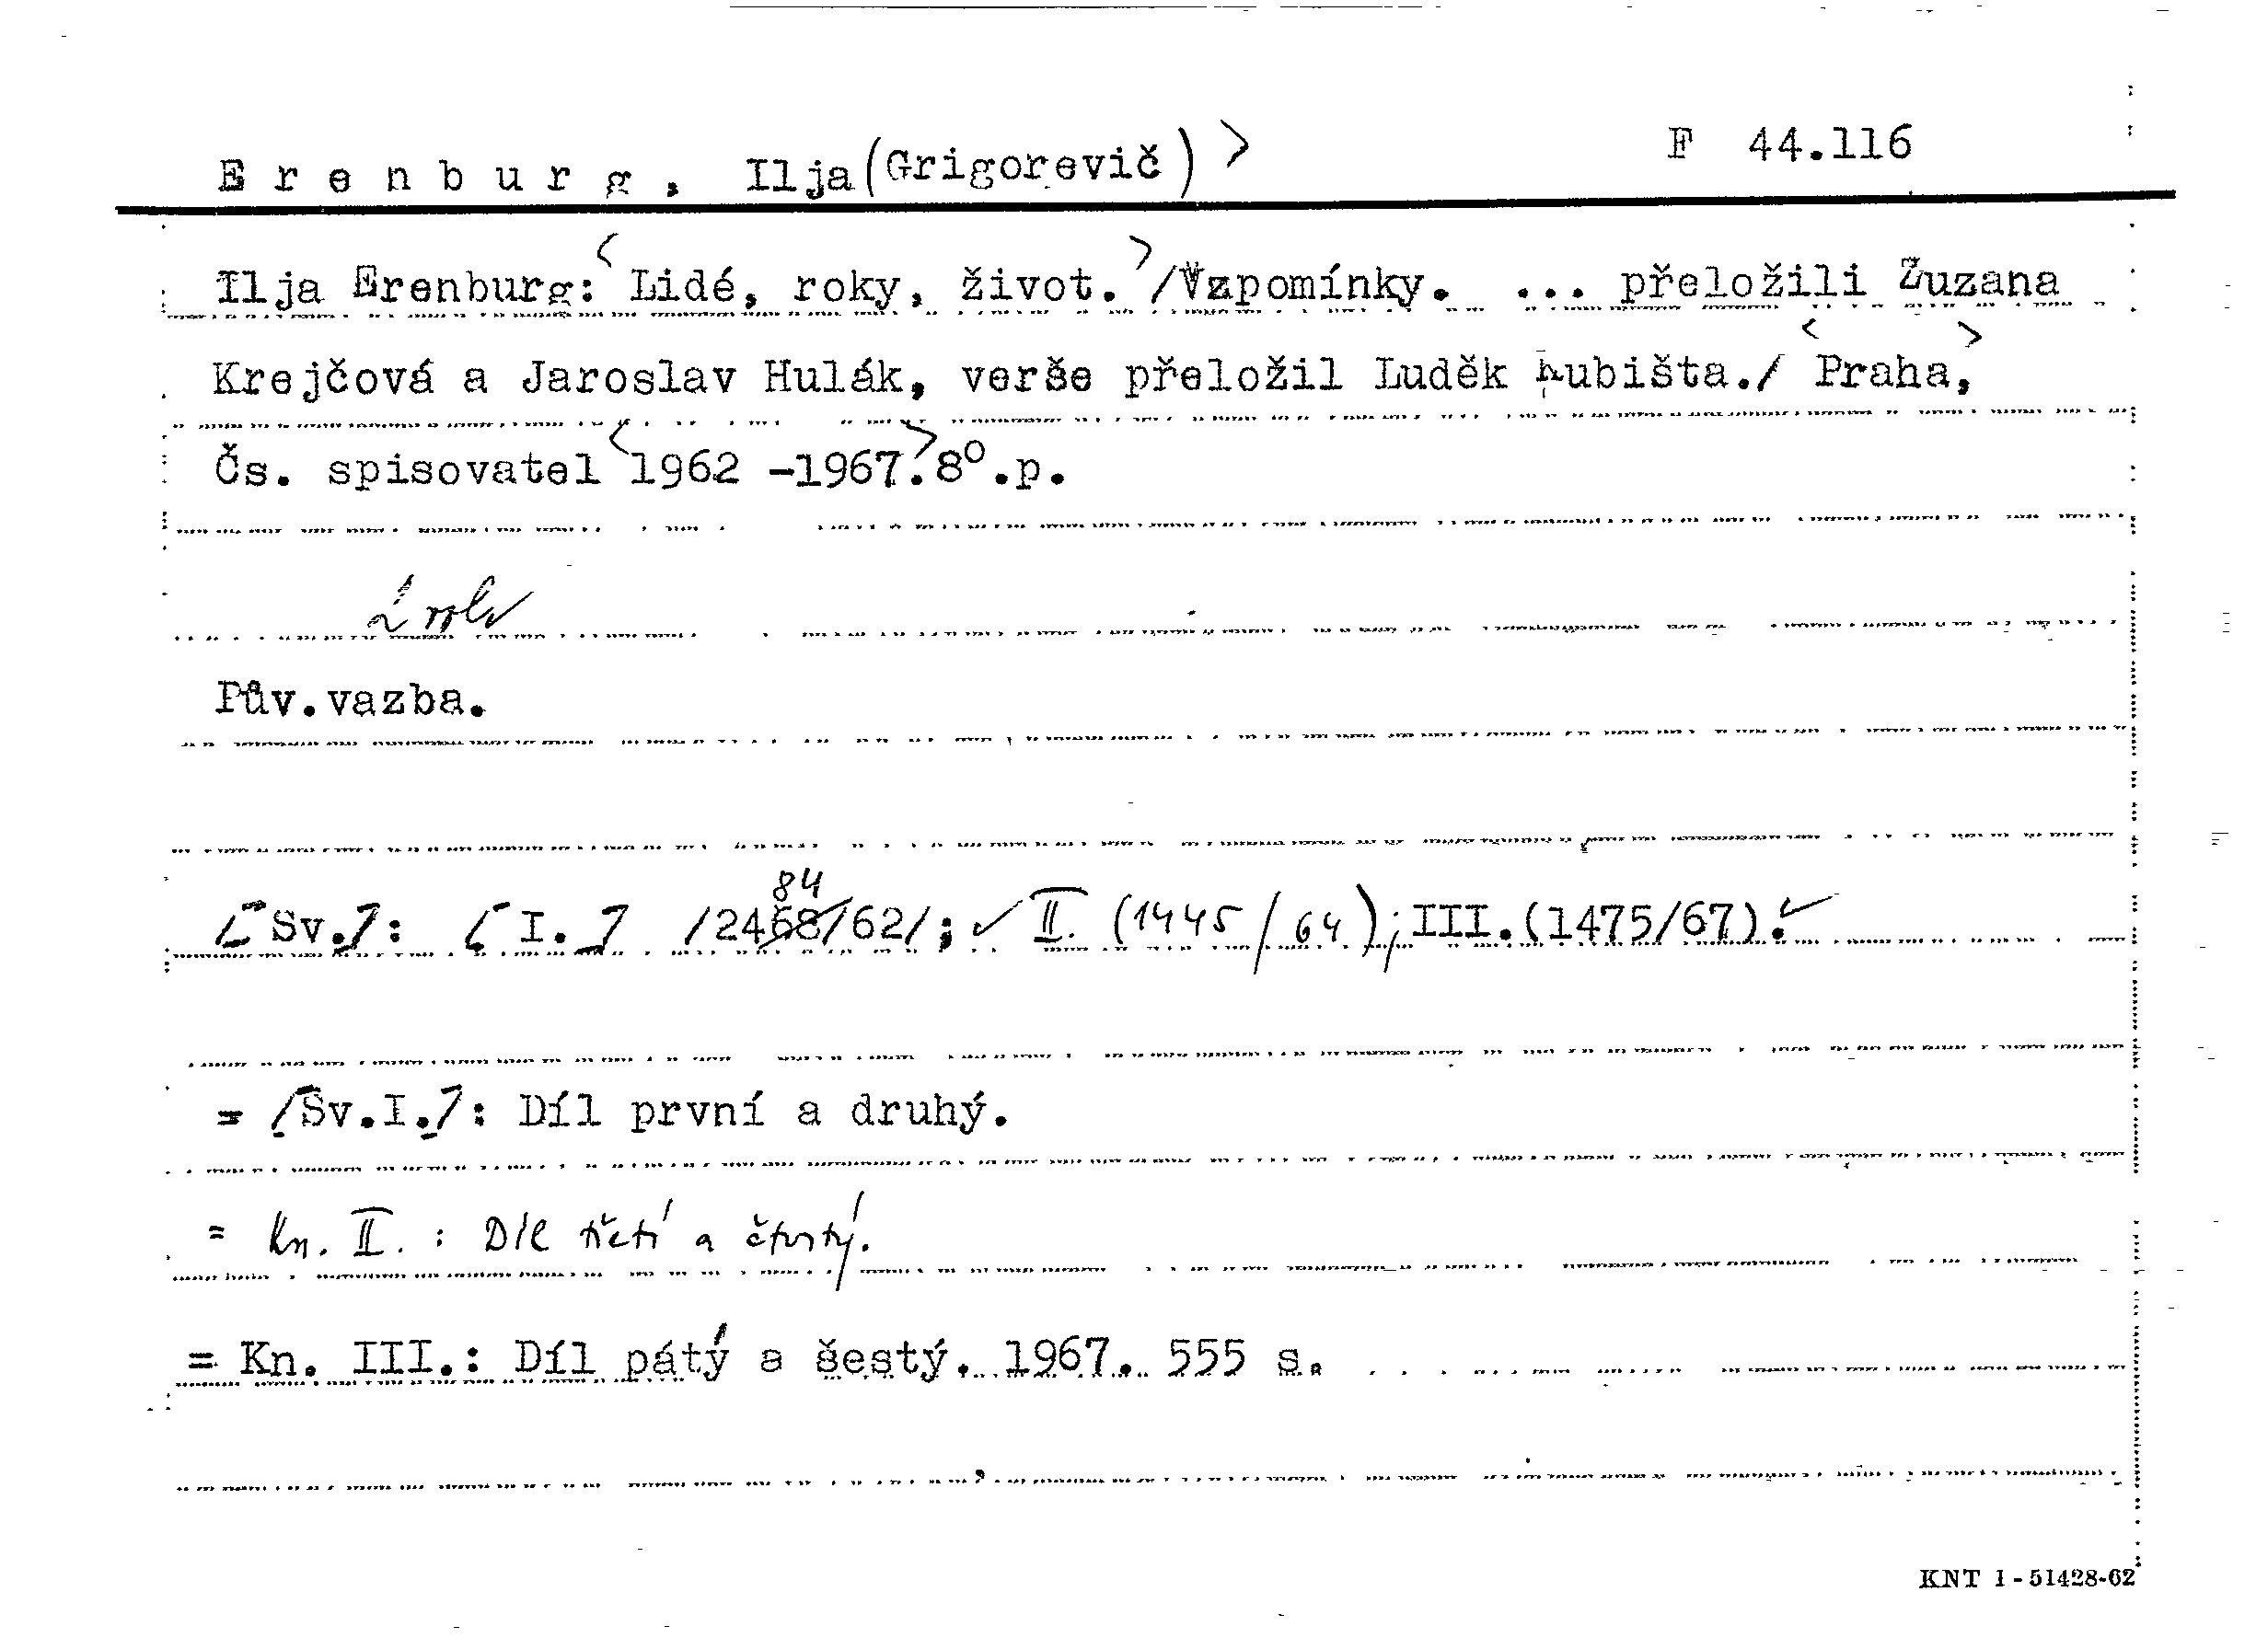 Erenburg, Ilja (Grigorevič) > F 44.116
Ilja Erenburg: < Lidé, roky, život. > /Vzpomínky. ... přeložili Zuzana
Krejčová a Jaroslav Hulák, verše přeložil Luděk Kubišta./ < Praha, >
Čs. spisovatel < 1962 -1967. > 8°.p.
Pův.vazba.
84
[Sv.]: [I.] /2468/62/; ✓ II. (1445/64); III.(1475/67). ✓
= [Sv.I.]: Díl první a druhý.
= Kn. II. : Díl třetí a čtvrtý.
= Kn. III.: Díl pátý a šestý. 1967. 555 s.
KNT 1-51428-62